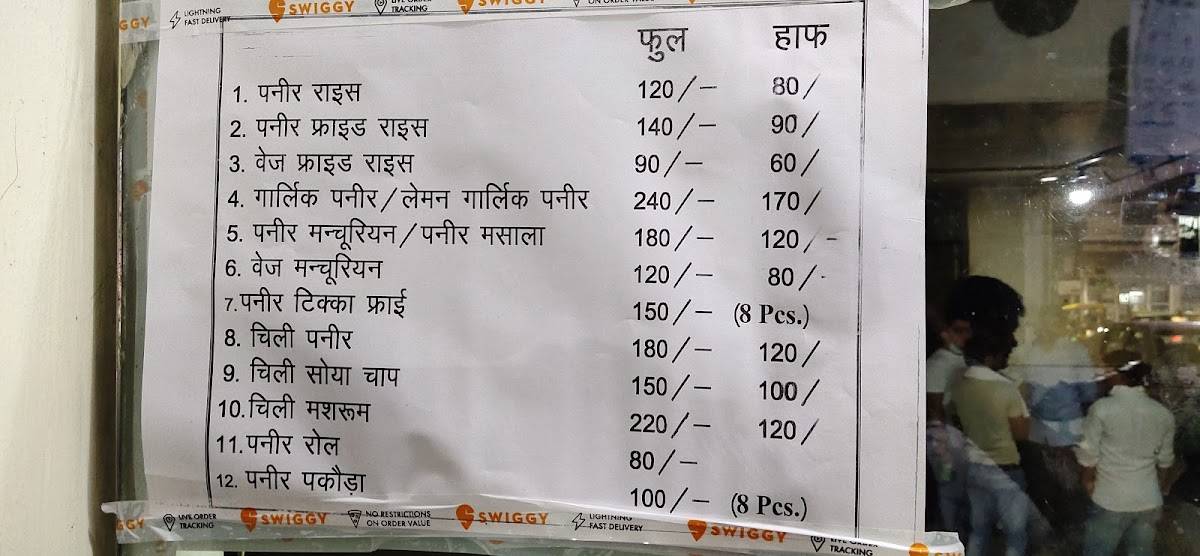 GGY LIGHTNING FAST DELIVERY SWIGGY LIVE ORDER TRACKING SWIGGY ON ORDER VALUE
फुल हाफ
1. पनीर राइस 120/- 80/
2. पनीर फ्राइड राइस 140/- 90/
3. वेज फ्राइड राइस 90/- 60/
4. गार्लिक पनीर/लेमन गार्लिक पनीर 240/- 170/
5. पनीर मन्चूरियन/पनीर मसाला 180/- 120/-
6. वेज मन्चूरियन 120/- 80/-
7. पनीर टिक्का फ्राई 150/- (8 Pcs.)
8. चिली पनीर 180/- 120/
9. चिली सोया चाप 150/- 100/
10. चिली मशरूम 220/- 120/
11. पनीर रोल 80/-
12. पनीर पकौड़ा 100/- (8 Pcs.)
GGY LIVE ORDER TRACKING SWIGGY NO RESTRICTIONS ON ORDER VALUE SWIGGY LIGHTNING FAST DELIVERY SWIGGY LIVE ORDER TRACKING